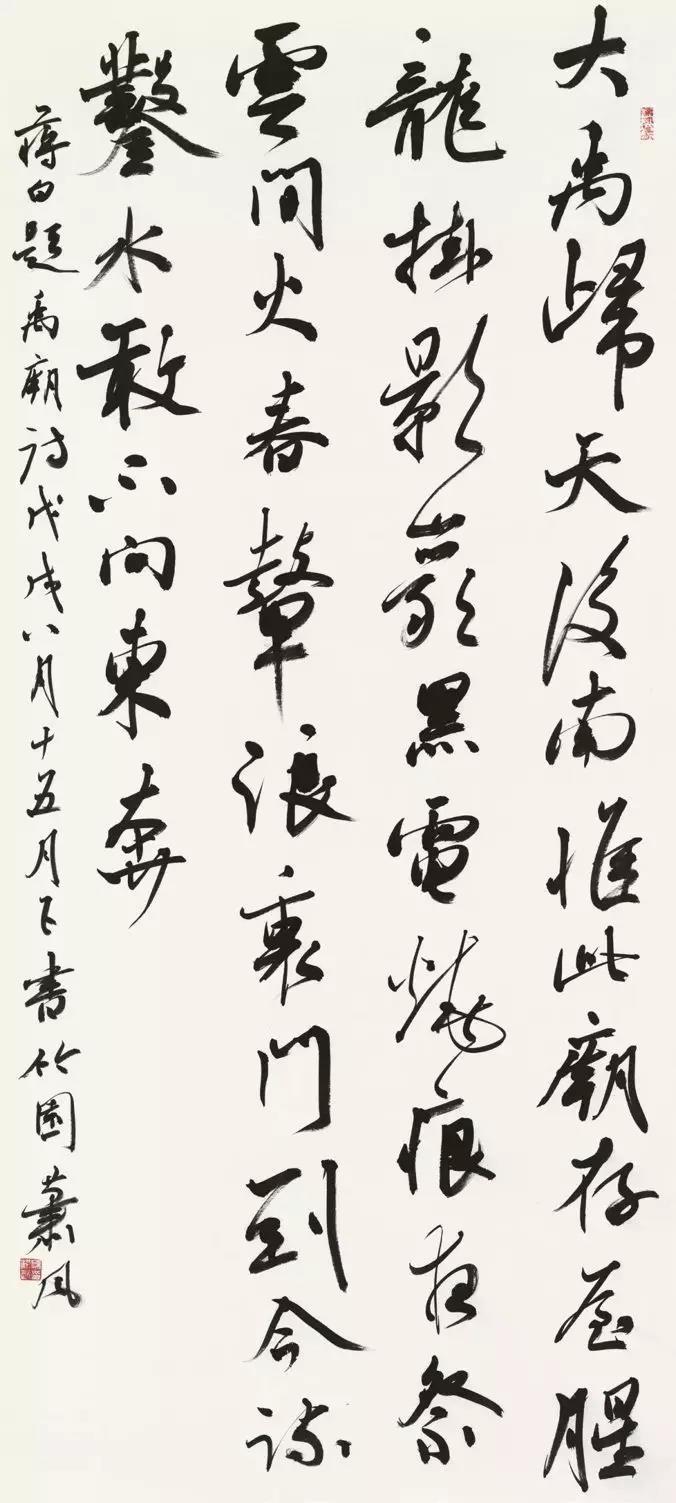 大禹歸天後南惟此廟存屋腥
龍掛影巖黑電燒痕夜祭
雲間火春聲浪裏門到今疏
鑿水敢不向東奔
蔣白題禹廟詩戊戌八月十五月下書竹園蕭風